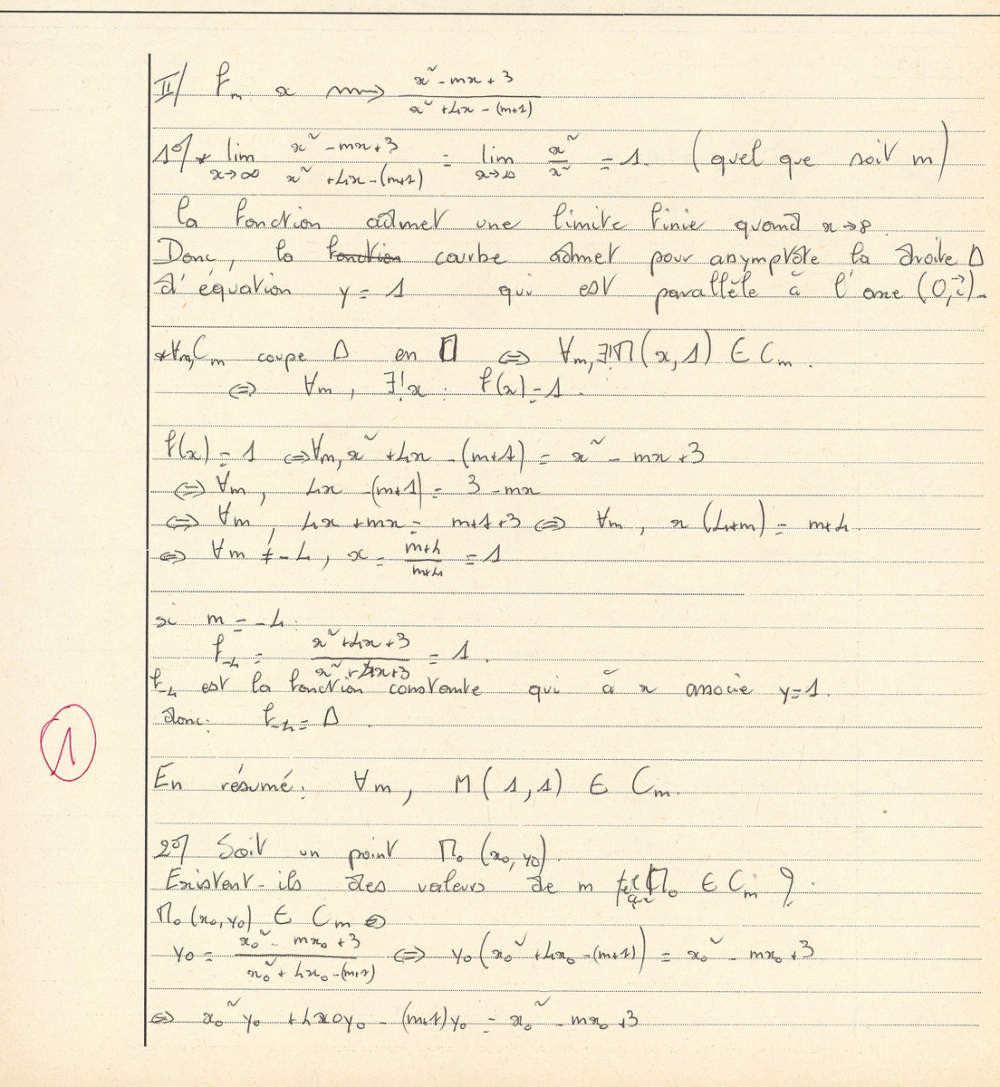 II/ f_m x ⟿ (x² - mx + 3)/(x² + 4x - (m+1))
1°/ * lim_{x→∞} (x² - mx + 3)/(x² + 4x - (m+1)) = lim_{x→∞} x²/x² = 1. (quel que soit m)
la fonction admet une limite finie quand x→∞.
Donc, la ~~fonction~~ courbe admet pour asymptôte la droite Δ
d'équation y = 1 qui est parallèle à l'axe (O,i⃗).
* ∀m, C_m coupe Δ en ⇔ ∀m, ∃! M(x,1) ∈ C_m.
⇔ ∀m, ∃! x : f(x) = 1.
f(x) = 1 ⇔ ∀m, x² + 4x - (m+1) = x² - mx + 3
⇔ ∀m, 4x - (m+1) = 3 - mx
⇔ ∀m, 4x + mx = m+1+3 ⇔ ∀m, x (4+m) = m+4.
⇔ ∀m ≠ -4, x = (m+4)/(m+4) = 1
si m = -4.
f_{-4} = (x² + 4x + 3)/(x² + 4x + 3) = 1.
f_{-4} est la fonction constante qui à x associe y=1.
donc: f_{-4} = Δ.
1
En résumé: ∀m, M(1,1) ∈ C_m.
2°/ Soit un point M₀ (x₀, y₀).
Existent-ils des valeurs de m tel que M₀ ∈ C_m ?
M₀ (x₀, y₀) ∈ C_m ⇔
y₀ = (x₀² - mx₀ + 3)/(x₀² + 4x₀ - (m+1)) ⇔ y₀ (x₀² + 4x₀ - (m+1)) = x₀² - mx₀ + 3
⇔ x₀² y₀ + 4x₀y₀ - (m+1)y₀ = x₀² - mx₀ + 3